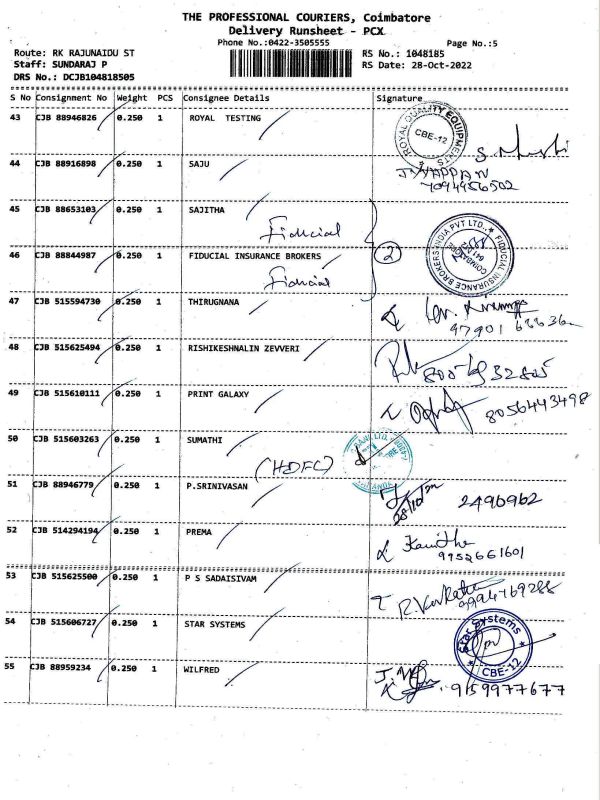 THE PROFESSIONAL COURIERS, Coimbatore
Delivery Runsheet - PCX
Phone No.:0422-3505555
Page No.:5
Route: RK RAJUNAIDU ST
RS No.: 1048185
Staff: SUNDARAJ P
RS Date: 28-Oct-2022
DRS No.: DCJB104818505
S No Consignment No Weight PCS Consignee Details Signature
43 CJB 88946826 0.250 1 ROYAL TESTING
ROYAL QUALITY EQUIPMENTS
CBE-12
44 CJB 88916898 0.250 1 SAJU
7094956502
45 CJB 88653103 0.250 1 SAJITHA
Fiducial
2
FIDUCIAL INSURANCE BROKERS INDIA PVT LTD.,
COIMBATORE
46 CJB 88844987 0.250 1 FIDUCIAL INSURANCE BROKERS
Fiducial
47 CJB 515594730 0.250 1 THIRUGNANA
48 CJB 515625494 0.250 1 RISHIKESHNALIN ZEVVERI
49 CJB 515610111 0.250 1 PRINT GALAXY
8056443498
50 CJB 515603263 0.250 1 SUMATHI
(HDFC)
51 CJB 88946779 0.250 1 P.SRINIVASAN
28/10
2490962
52 CJB 514294194 0.250 1 PREMA
9952661601
53 CJB 515625500 0.250 1 P S SADAISIVAM
9994769288
54 CJB 515606727 0.250 1 STAR SYSTEMS
Star Systems
CBE-12
55 CJB 88959234 0.250 1 WILFRED
9159977677